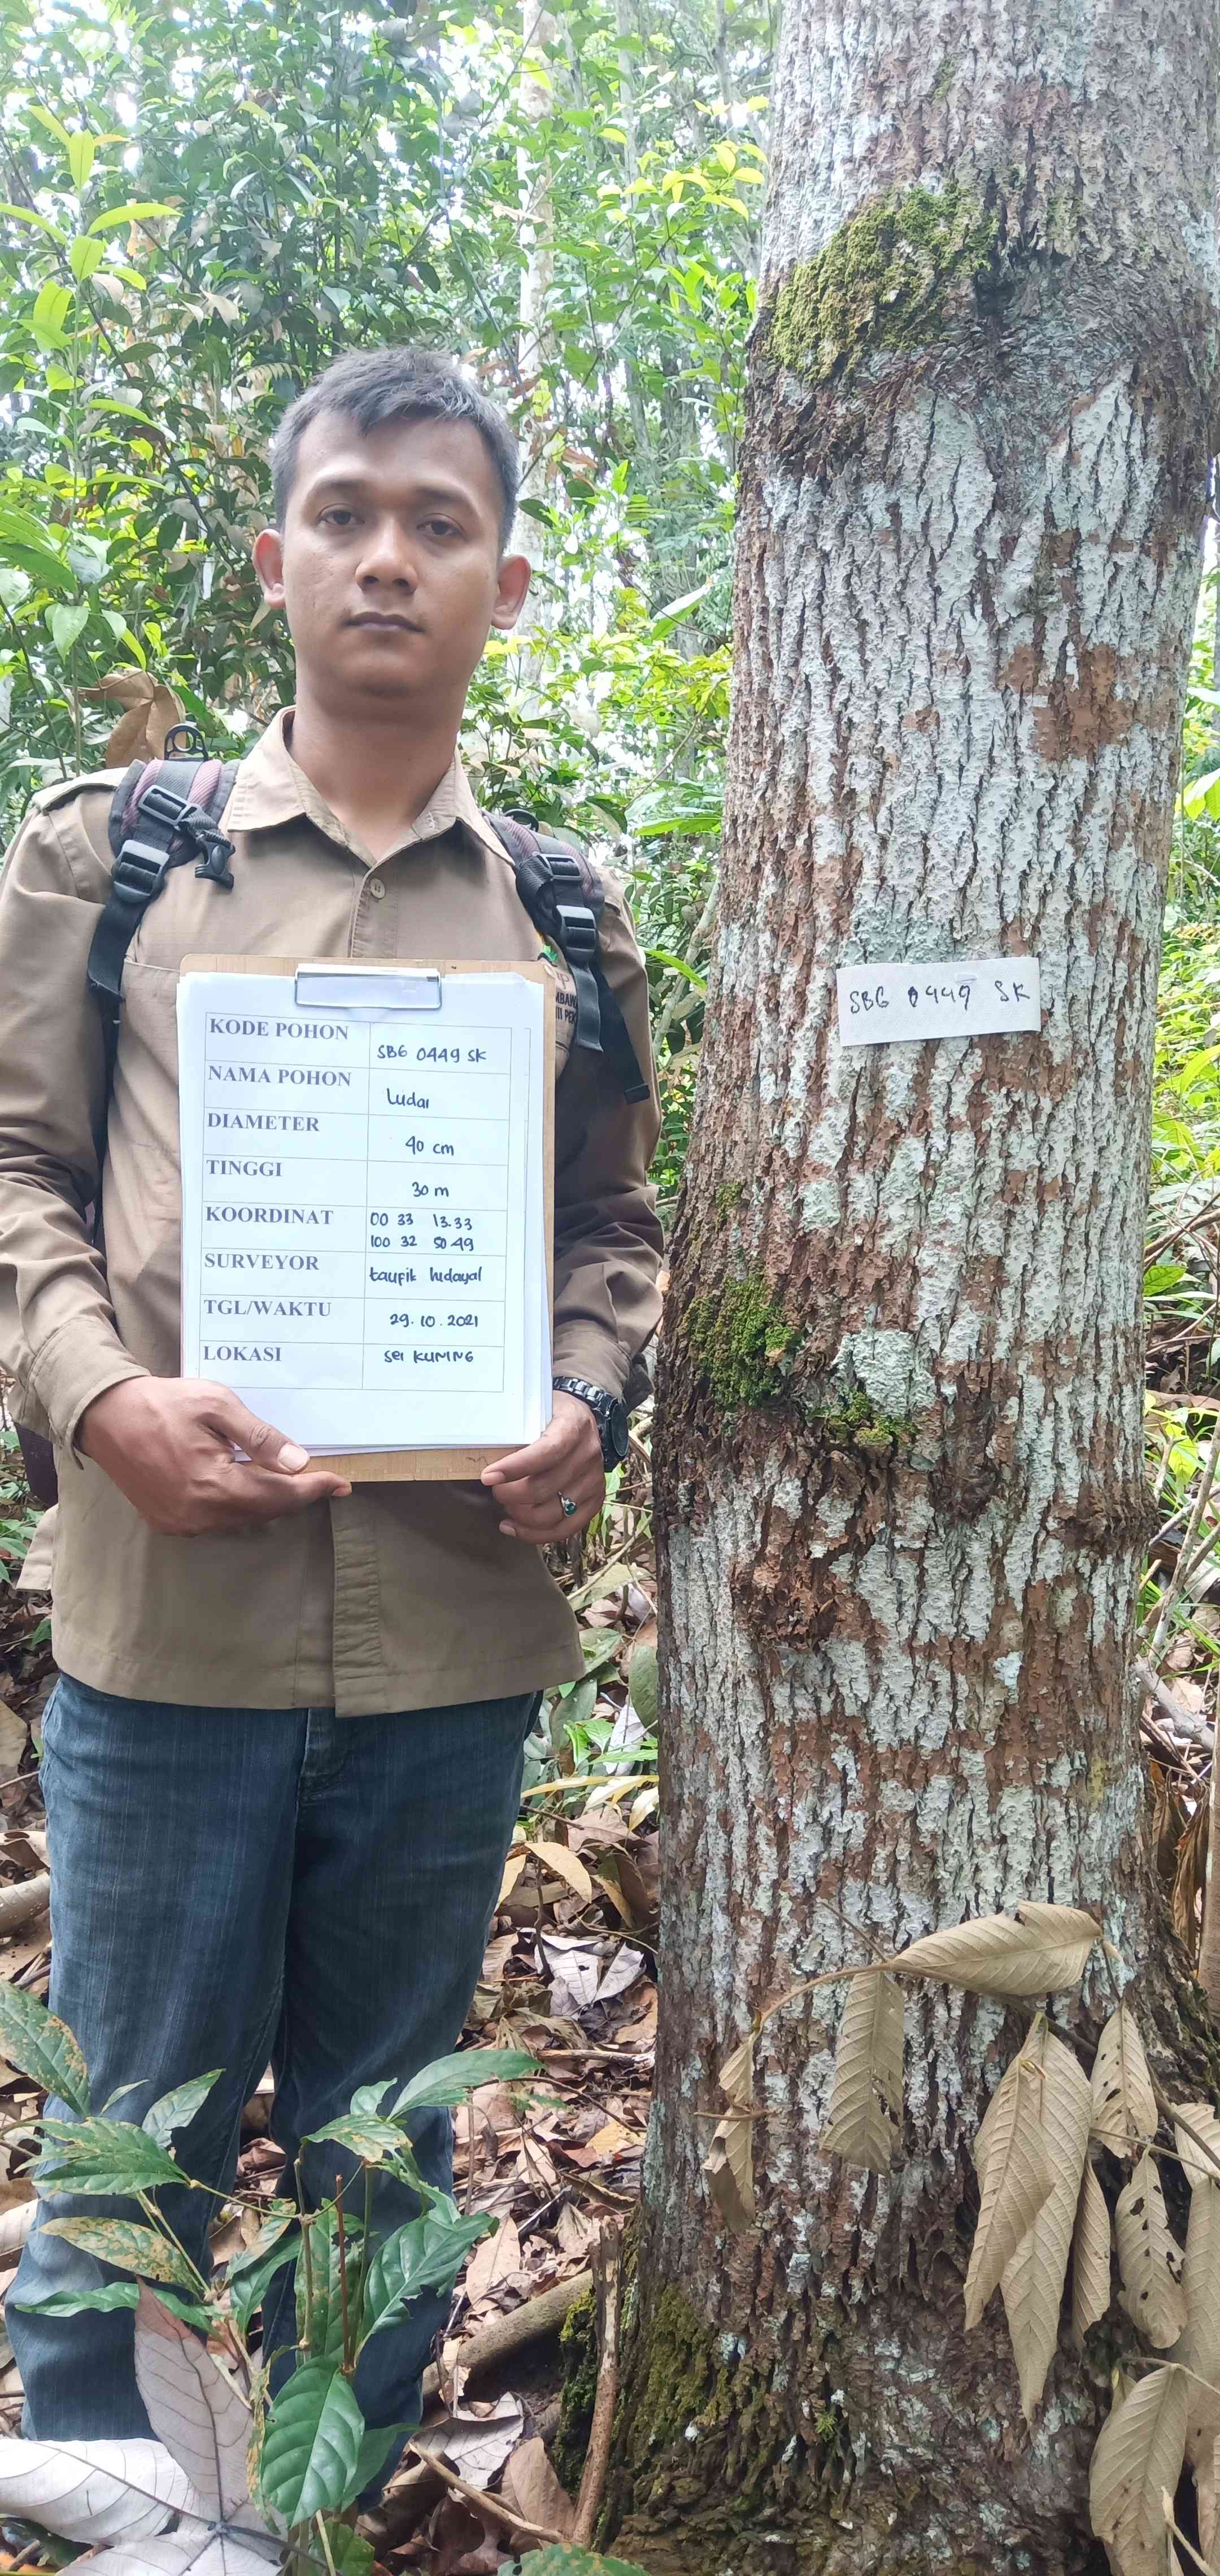 KODE POHON SBG 0449 SK
NAMA POHON Ludai
DIAMETER 40 cm
TINGGI 30 m
KOORDINAT 00 33 13.33
100 32 50.49
SURVEYOR taufik hidayat
TGL/WAKTU 29.10.2021
LOKASI sei KUNING
SBG 0449 SK